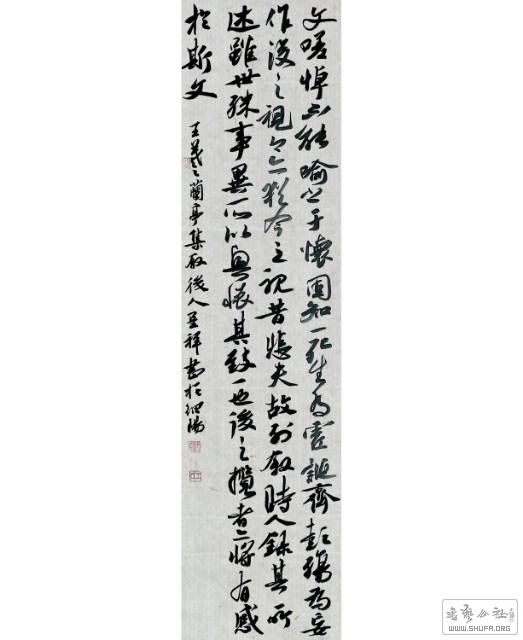 文嗟悼不能喻之于懷固知一死生為虛誕齊彭殤為妄
作後之視今亦猶今之視昔悲夫故列敘時人錄其所
述雖世殊事異所以興懷其致一也後之攬者亦將有感
於斯文
王羲之蘭亭集敘後人祥書於
书艺公社
WWW.SHUFA.ORG